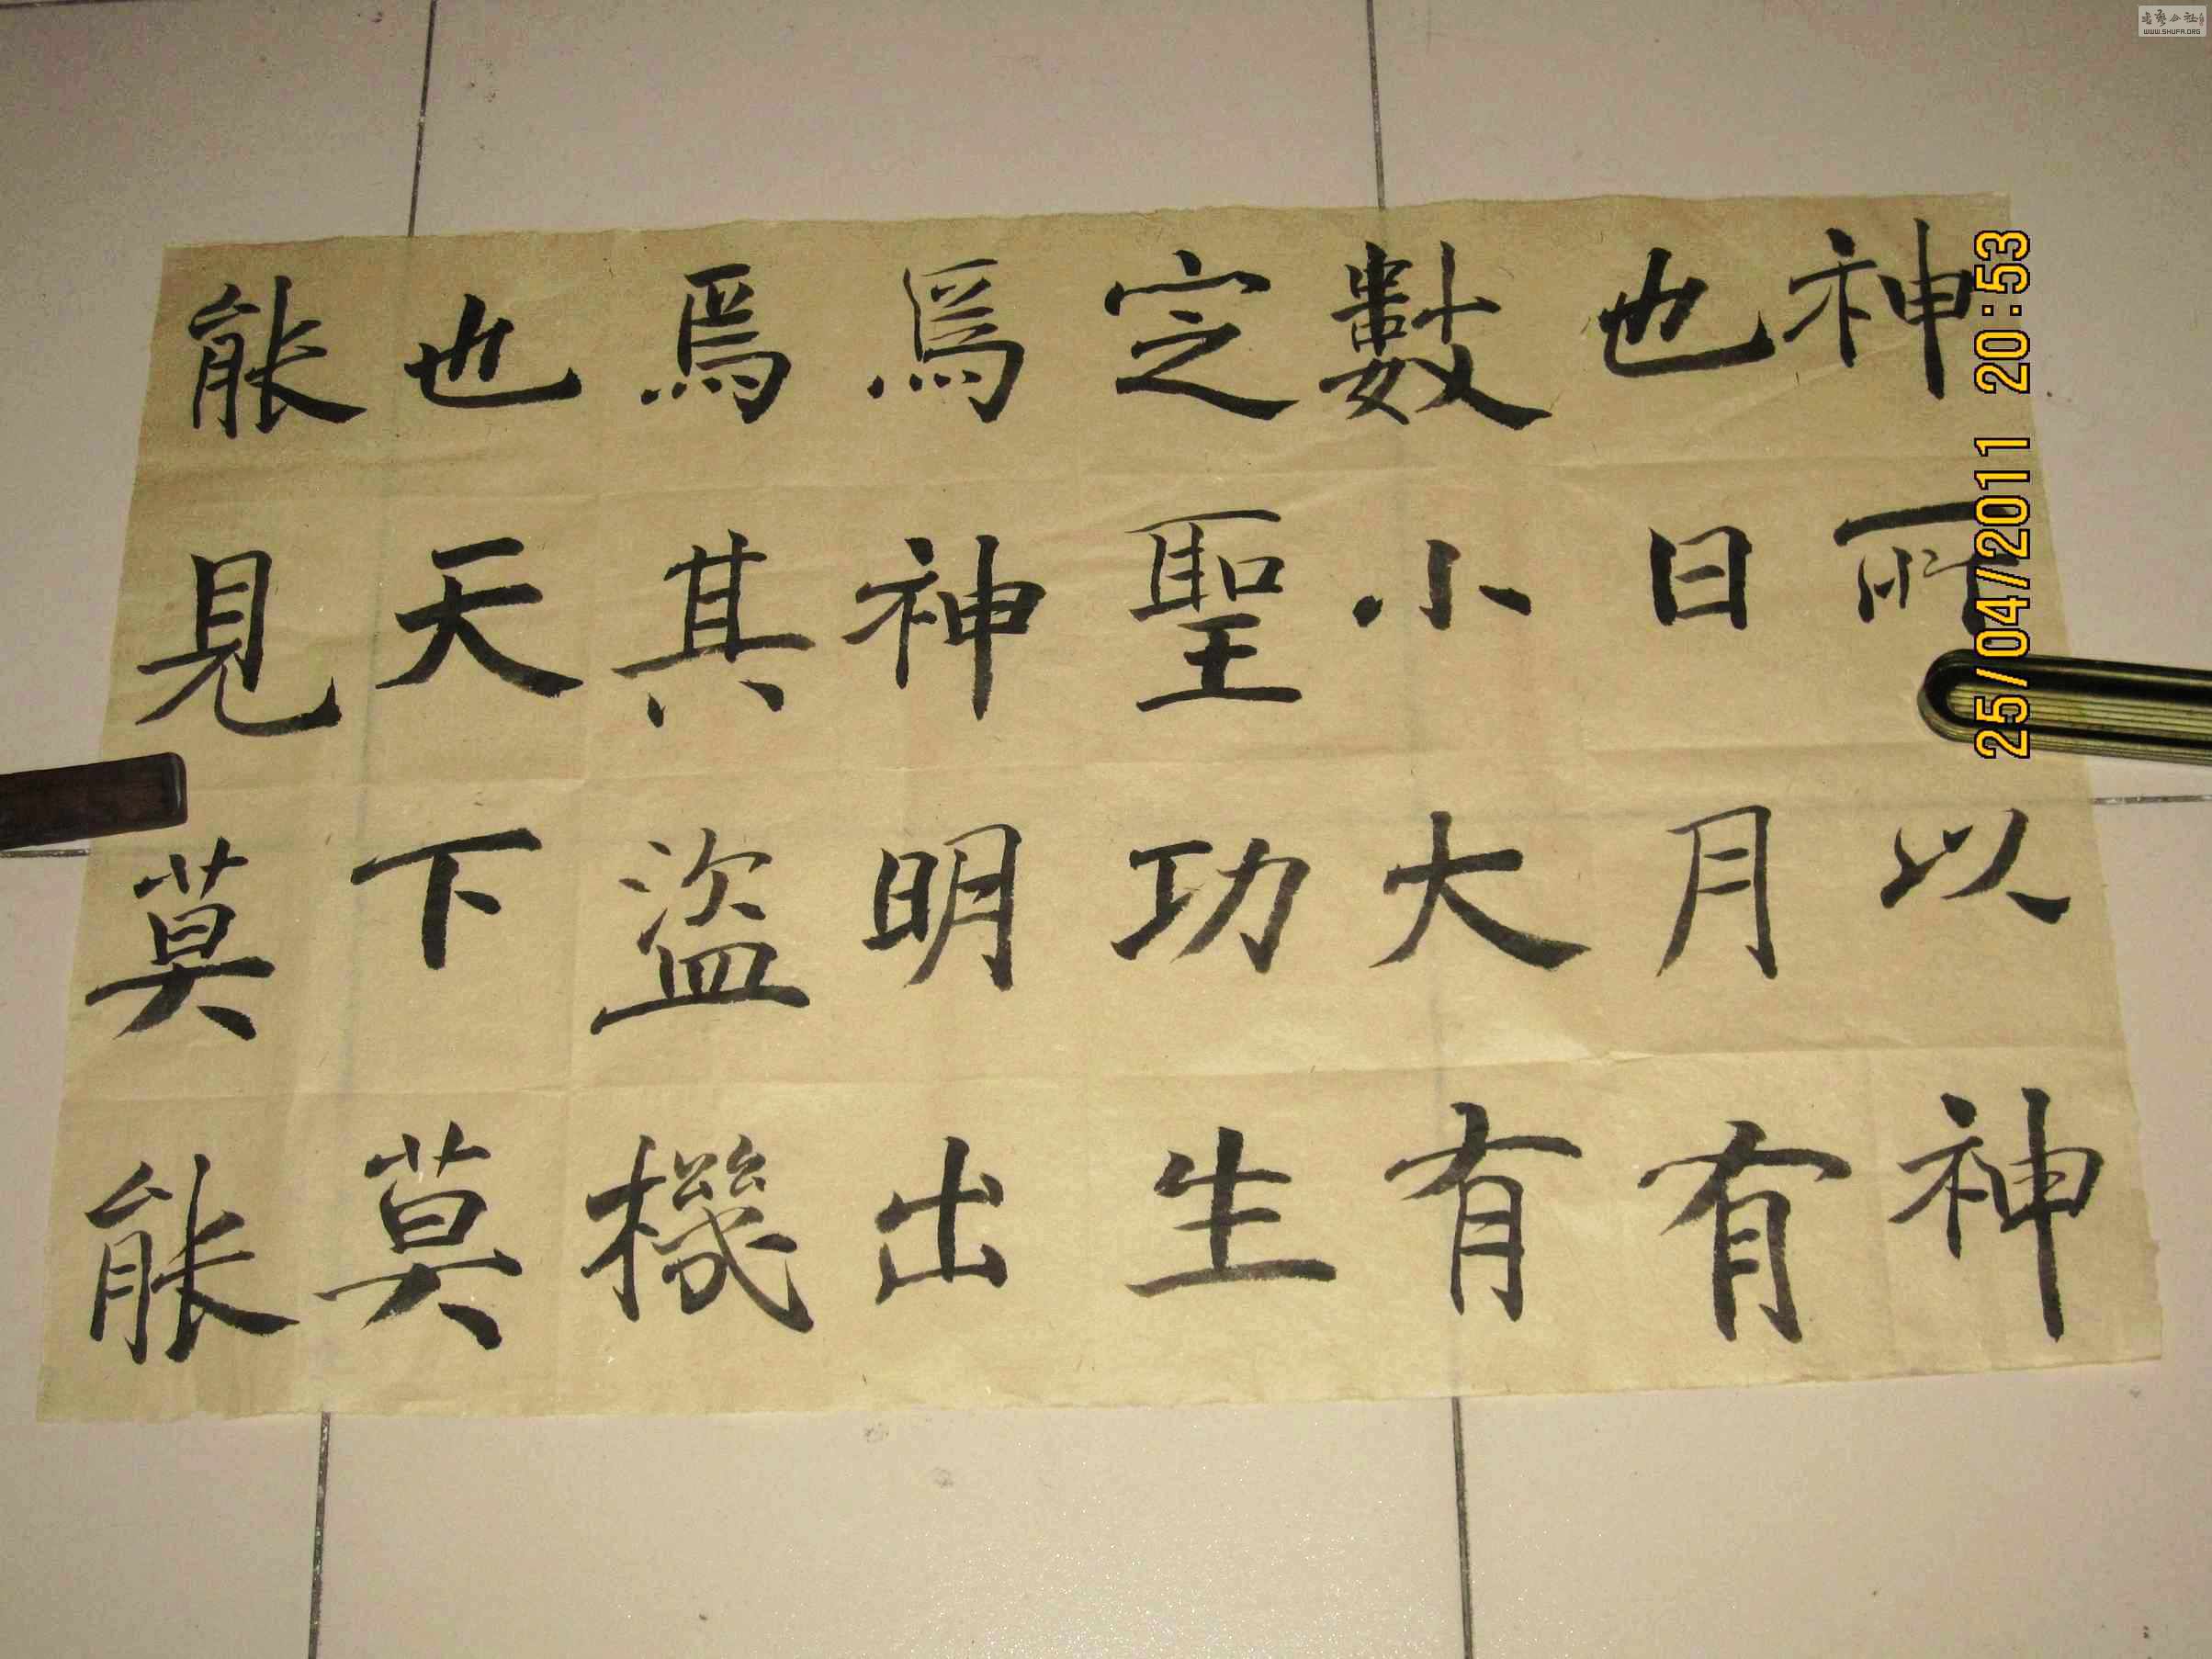 神所以神
也日月有
數小大有
定聖功生
焉神明出
焉其盜機
也天下莫
能見莫能
25/04/2011 20:53
WWW.SHUFA.ORG